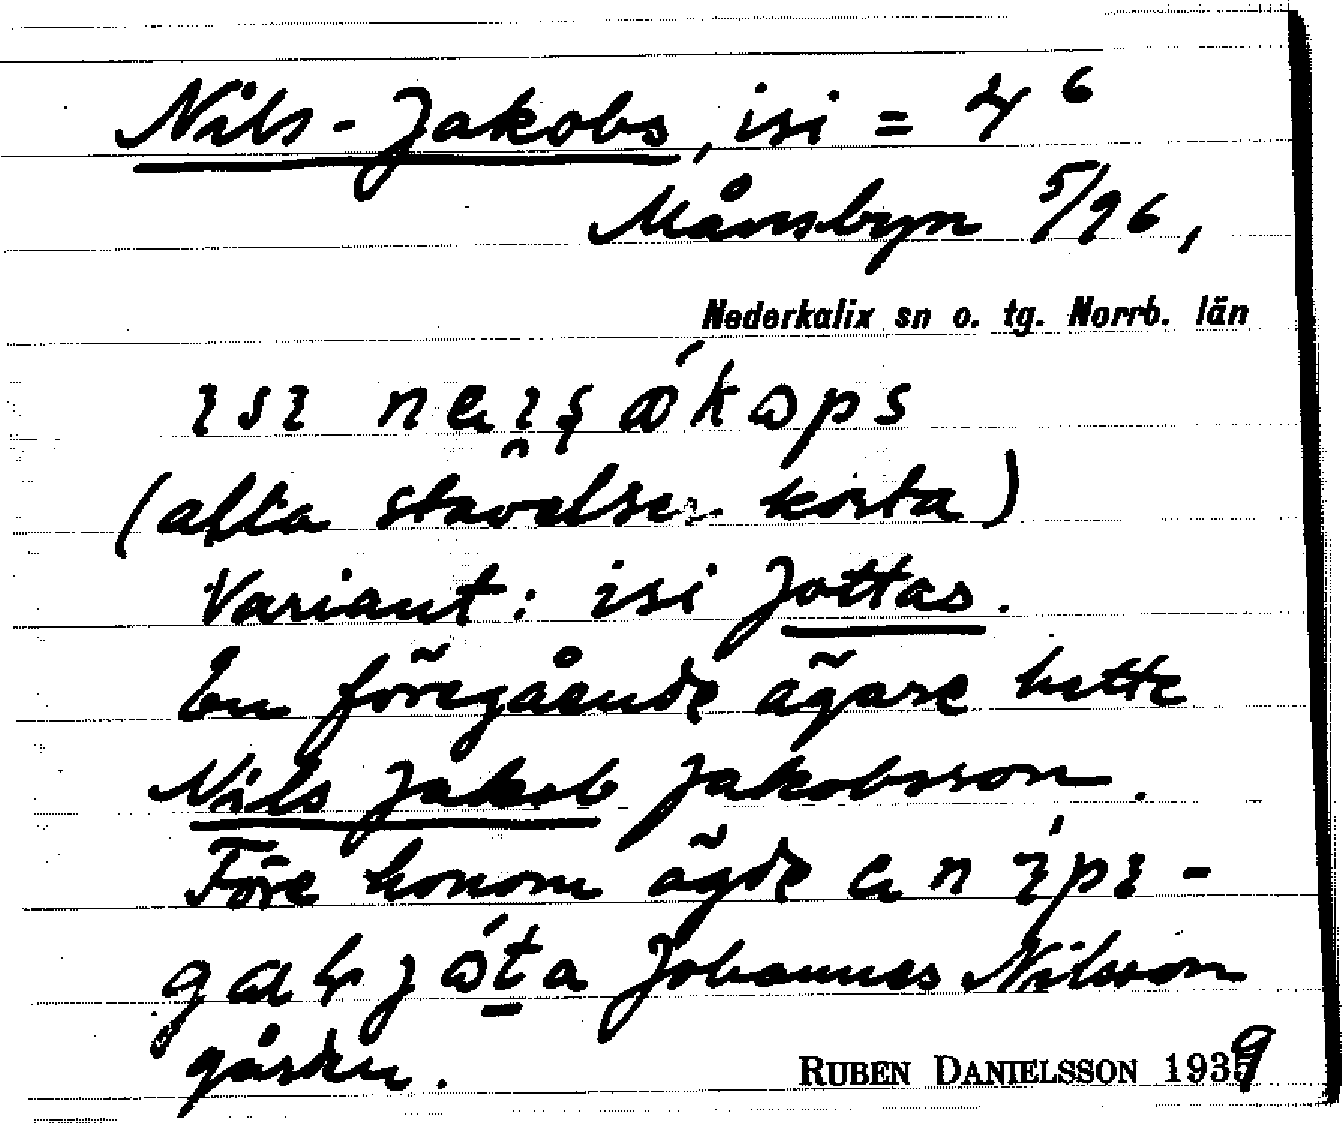 Nils-Jakobs, isi = 4⁶
Månsbyn 5/96,
Nederkalix sn o. tg. Norrb. län
ɪsɪ
(alla stavelser korta)
Variant: isi Jottas.
En föregående ägare hette
Nils Jakob Jakobsson.
Före honom ägde
Johannes Nilsson
gården.
RUBEN DANIELSSON 1939